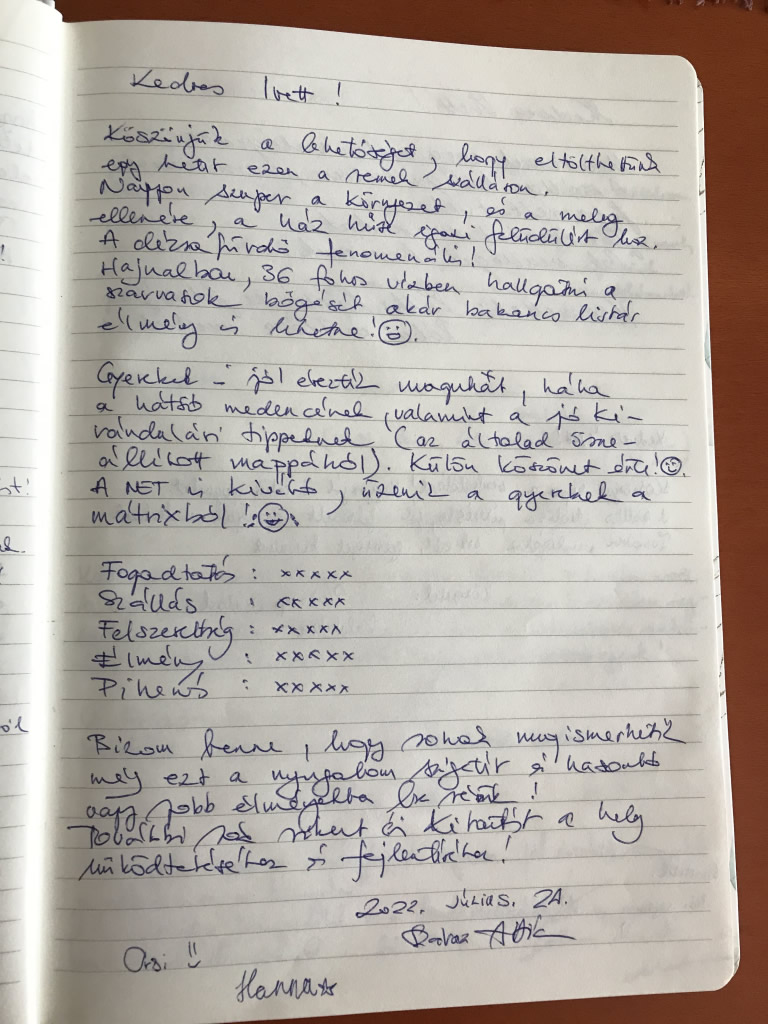 Kedves Ivett!
Köszönjük a lehetőséget, hogy eltölthettünk
egy hetet ezen a remek szálláson.
Nagyon szuper a környezet, és a meleg
ellenére, a ház hűse igazi felüdülést hoz.
A dézsafürdő fenomenális!
Hajnalban, 36 fokos vízben hallgatni a
szarvasok bőgését akár bakancs listás
élmény is lehetne! 😃.
Gyerekek - jól érezték magukat, hála
a hátsó medencének, valamint a jó ki-
rándulási tippeknek (az általad össze-
állított mappából). Külön köszönet érte! 😃.
A NET is kiváló, üzenik a gyerekek a
mátrixból! 😃
Fogadtatás : xxxxx
Szállás : xxxxx
Felszereltség : xxxxx
Élmény : xxxxx
Pihenés : xxxxx
Bízom benne, hogy sokak megismerhetik
még ezt a nyugalom szigetét és hasonló
vagy jobb élményekben lesz részük!
További sok sikert és kitartást a hely
működtetéséhez és fejlesztéséhez!
2022. Július. 24.
Attila
Orsi !!
Hanna☆